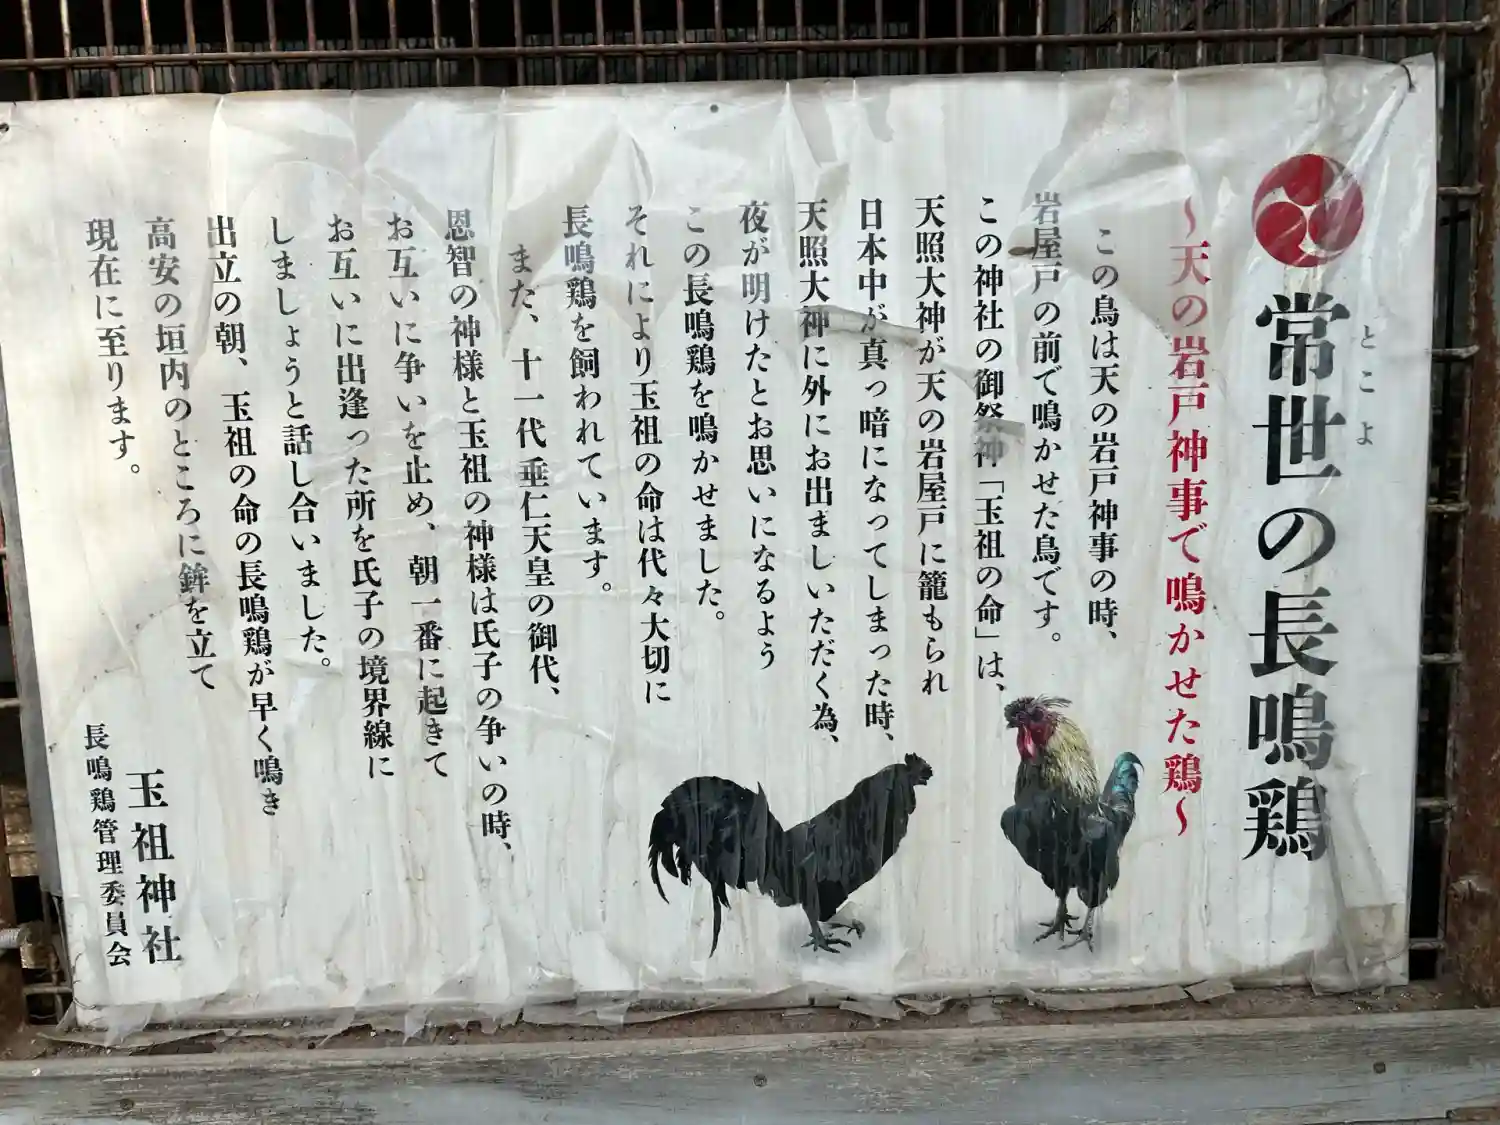 とこよ
常世の長鳴鶏
～天の岩戸神事で鳴かせた鶏～
この鳥は天の岩戸神事の時、
岩屋戸の前で鳴かせた鳥です。
この神社の御祭神「玉祖の命」は、
天照大神が天の岩屋戸に籠もられ
日本中が真っ暗になってしまった時、
天照大神に外にお出ましいただく為、
夜が明けたとお思いになるよう
この長鳴鶏を鳴かせました。
それにより玉祖の命は代々大切に
長鳴鶏を飼われています。
また、十一代垂仁天皇の御代、
恩智の神様と玉祖の神様は氏子の争いの時、
お互いに争いを止め、朝一番に起きて
お互いに出逢った所を氏子の境界線に
しましょうと話し合いました。
出立の朝、玉祖の命の長鳴鶏が早く鳴き
高安の垣内のところに鉾を立て
現在に至ります。
玉祖神社
長鳴鶏管理委員会